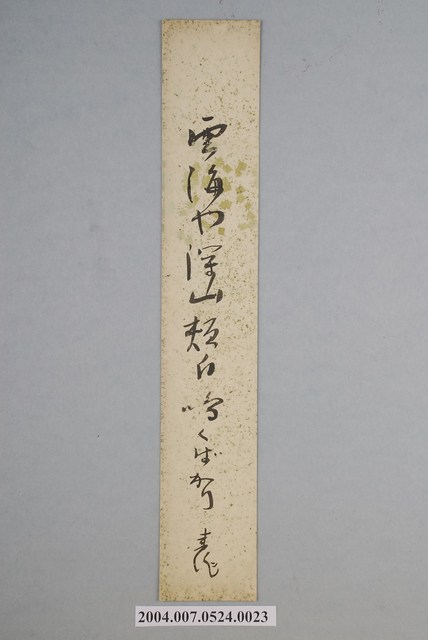 雲海や深山頬白鳴くばかり
2004.007.0524.0023